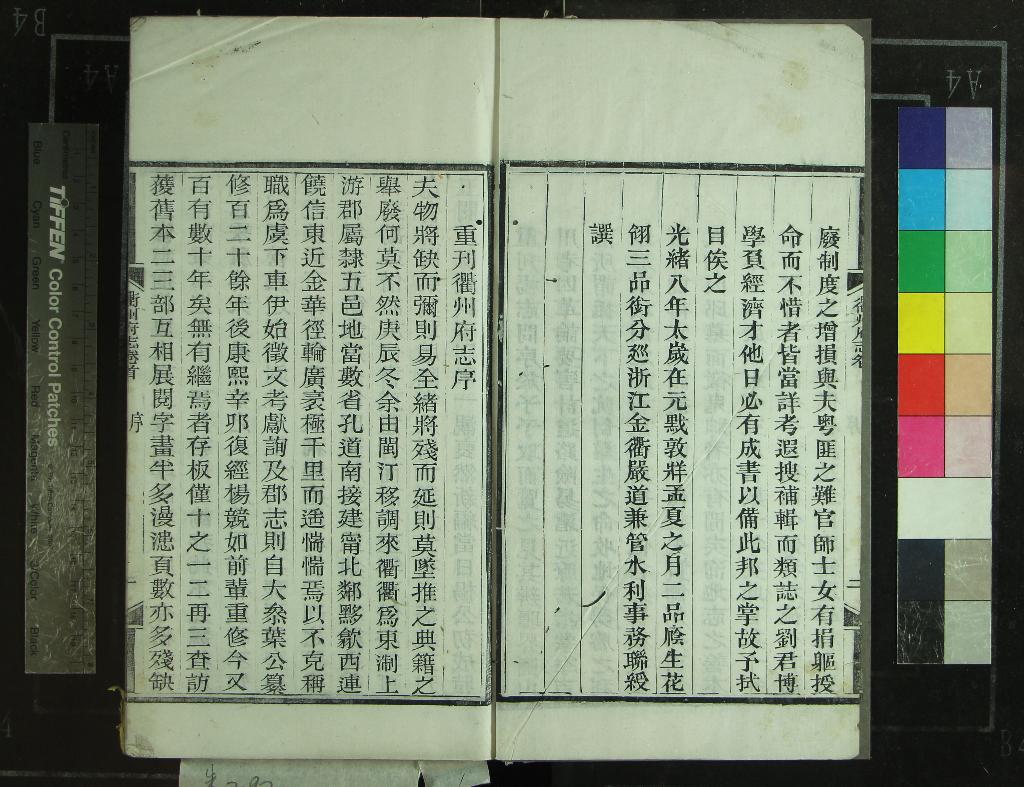 廢制度之增損與夫粵匪之難官師士女有捐軀授
命而不惜者皆當詳考遐搜補輯而類誌之劉君博
學負經濟才他日必有成書以備此邦之掌故予拭
目俟之
光緒八年太歲在元黓敦牂孟夏之月二品廕生花
翎三品銜分廵浙江金衢嚴道兼管水利事務聯綬
譔
重刊衢州府志序
夫物將缺而彌則易全緒將殘而延則莫墜推之典籍之
舉廢何莫不然庚辰冬余由閩汀移調來衢衢爲東淛上
游郡屬隸五邑地當數省孔道南接建甯北鄰黟歙西連
饒信東近金華徑輪廣袤極千里而遥惴惴焉以不克稱
職爲虞下車伊始徵文考獻詢及郡志則自大叅葉公纂
修百二十餘年後康熙辛卯復經楊競如前輩重修今又
百有數十年矣無有繼焉者存板僅十之一二再三查訪
蒦舊本二三部互相展閱字畫半多漫漶頁數亦多殘缺
衢州府志卷首
序
TIFFEN Color Control Patches
Blue
Cyan
Green
Yellow
Red
Magenta
White
3/Color
Black
Centimetres
A4
A4
B4